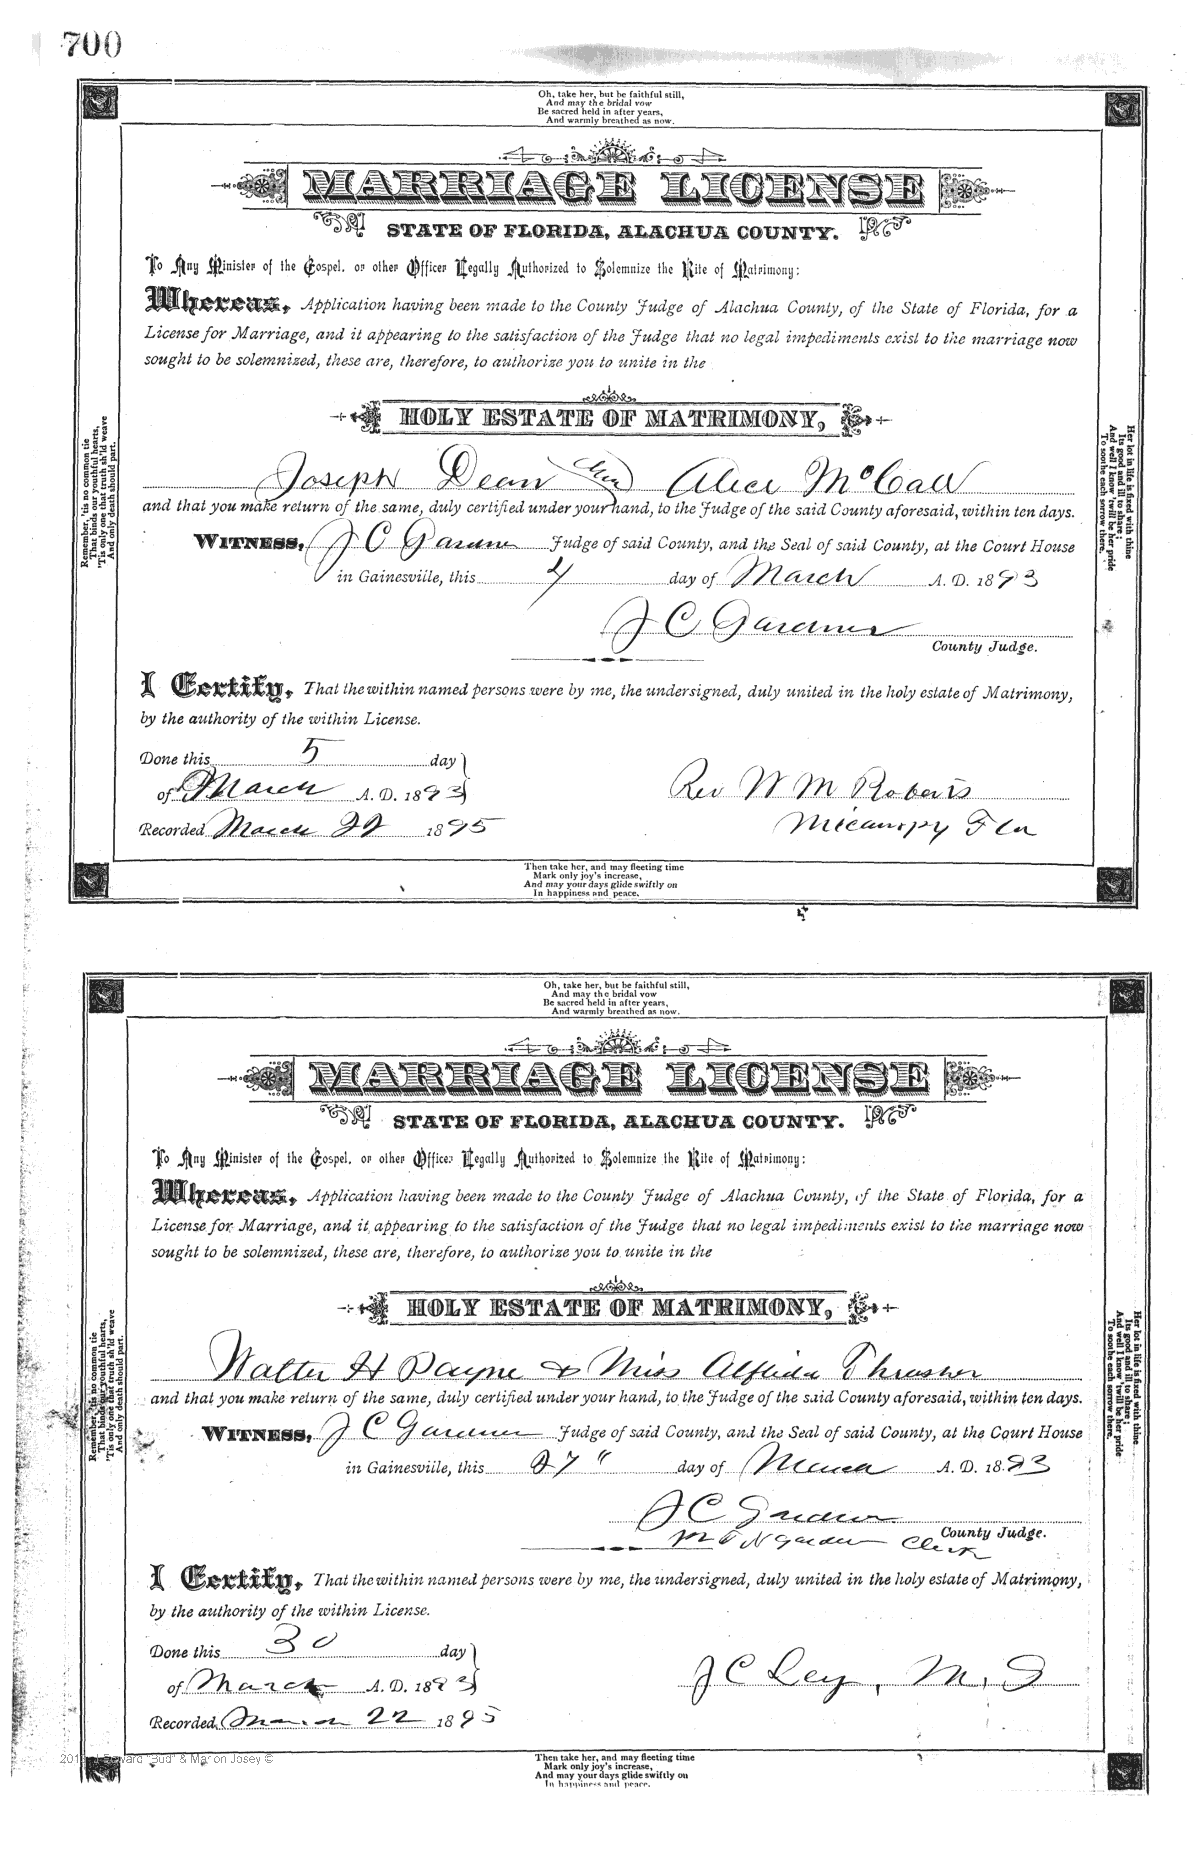 700
Oh, take her, but be faithful still,
And may the bridal vow
Be sacred held in after years,
And warmly breathed as now.
MARRIAGE LICENSE
STATE OF FLORIDA, ALACHUA COUNTY.
To Any Minister of the Gospel, or other Officer Legally Authorized to Solemnize the Rite of Matrimony:
Whereas, Application having been made to the County Judge of Alachua County, of the State of Florida, for a
License for Marriage, and it appearing to the satisfaction of the Judge that no legal impediments exist to the marriage now
sought to be solemnized, these are, therefore, to authorize you to unite in the
HOLY ESTATE OF MATRIMONY,
Joseph Dean Alice McCall
and that you make return of the same, duly certified under your hand, to the Judge of the said County aforesaid, within ten days.
WITNESS, J C Gardner Judge of said County, and the Seal of said County, at the Court House
in Gainesville, this 4 day of March A. D. 1893
J C Gardner
County Judge.
I Certify, That the within named persons were by me, the undersigned, duly united in the holy estate of Matrimony,
by the authority of the within License.
Done this 5 day
of March A. D. 1893
Rev W M Roberts
Recorded March 22 1895
Micanopy Fla
Remember, 'tis no common tie
That binds our youthful hearts,
'Tis only one that truth sh'ld weave
And only death should part.
Her lot in life is fixed with thine
Its good and ill to share;
And well I know 'twill be her pride
To soothe each sorrow there.
Then take her, and may fleeting time
Mark only joy's increase,
And may your days glide swiftly on
In happiness and peace.
Oh, take her, but be faithful still,
And may the bridal vow
Be sacred held in after years,
And warmly breathed as now.
MARRIAGE LICENSE
STATE OF FLORIDA, ALACHUA COUNTY.
To Any Minister of the Gospel, or other Officer Legally Authorized to Solemnize the Rite of Matrimony:
Whereas, Application having been made to the County Judge of Alachua County, of the State of Florida, for a
License for Marriage, and it appearing to the satisfaction of the Judge that no legal impediments exist to the marriage now
sought to be solemnized, these are, therefore, to authorize you to unite in the
HOLY ESTATE OF MATRIMONY,
Walter H Payne & Miss Alfrida Thrasher
and that you make return of the same, duly certified under your hand, to the Judge of the said County aforesaid, within ten days.
WITNESS, J C Gardner Judge of said County, and the Seal of said County, at the Court House
in Gainesville, this 27" day of March A. D. 1893
J C Gardner
County Judge.
Gardner Clerk
I Certify, That the within named persons were by me, the undersigned, duly united in the holy estate of Matrimony,
by the authority of the within License.
Done this 30 day
of March A. D. 1893
J C Ley, M. G
Recorded March 22 1895
Remember, 'tis no common tie
That binds our youthful hearts,
'Tis only one that truth sh'ld weave
And only death should part.
Her lot in life is fixed with thine
Its good and ill to share;
And well I know 'twill be her pride
To soothe each sorrow there.
"Bud" & Marion Josey ©
Then take her, and may fleeting time
Mark only joy's increase,
And may your days glide swiftly on
In happiness and peace.